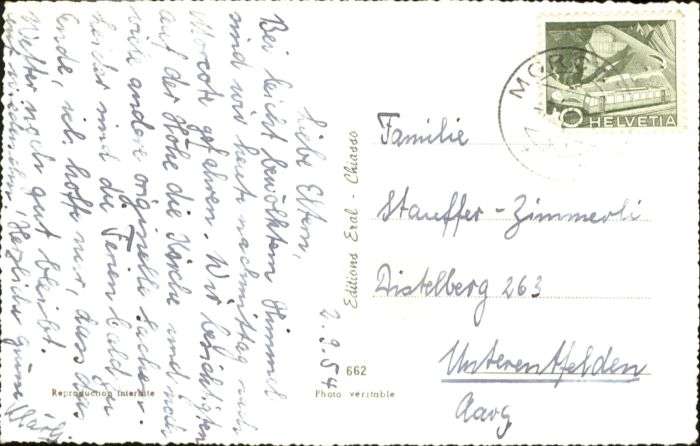 2.9.54
Liebe Eltern,
Bei leicht bewölktem Himmel
sind wir heute nachmittag nach
Morcote gefahren. Wir besichtigten
auf der Höhe die Kirche und noch
viele andere originelle Sachen.
Leider sind die Ferien bald zu
Ende, ich hoffe nur, dass das
Wetter noch gut bleibt.
Herzliche Grüsse
Editions Eral - Chiasso
662
Reproduction interdite
Photo veritable
MORC
HELVETIA
Familie
Stauffer-Zimmerli
Distelberg 263
Unterentfelden
Aarg